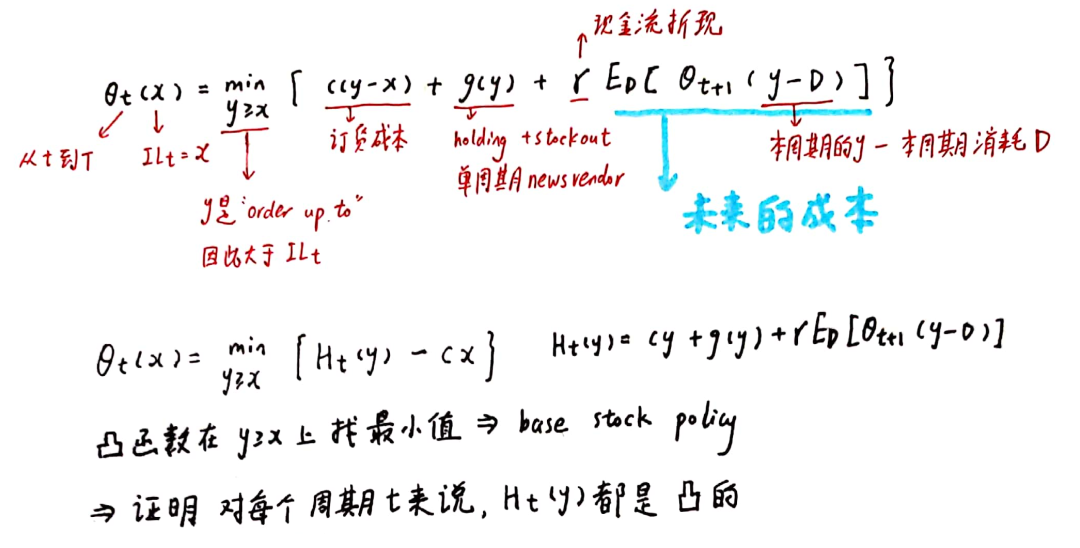 现金流折现
θt(x) = min y≥x [ c(y-x) + g(y) + r ED[ θt+1 (y-D) ] }
从t到T
ILt = x
订货成本
holding + stockout
单周期 newsvendor
本周期的y - 本周期消耗D
y是"order up to"
因此大于 ILt
未来的成本
θt(x) = min y≥x [ Ht(y) - cx } Ht(y) = cy + g(y) + r ED [θt+1 (y-D)]
凸函数在 y≥x 上找最小值 ⇒ base stock policy
⇒ 证明 对每个周期t来说, Ht(y) 都是 凸的